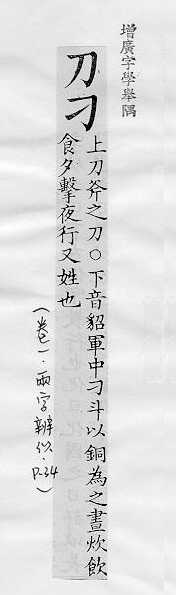 增廣字學舉隅
刀刁
上刀斧之刀○下音貂軍中刁斗以銅為之晝炊飲
食夕擊夜行又姓也
(卷一·兩字辨似·P.34)